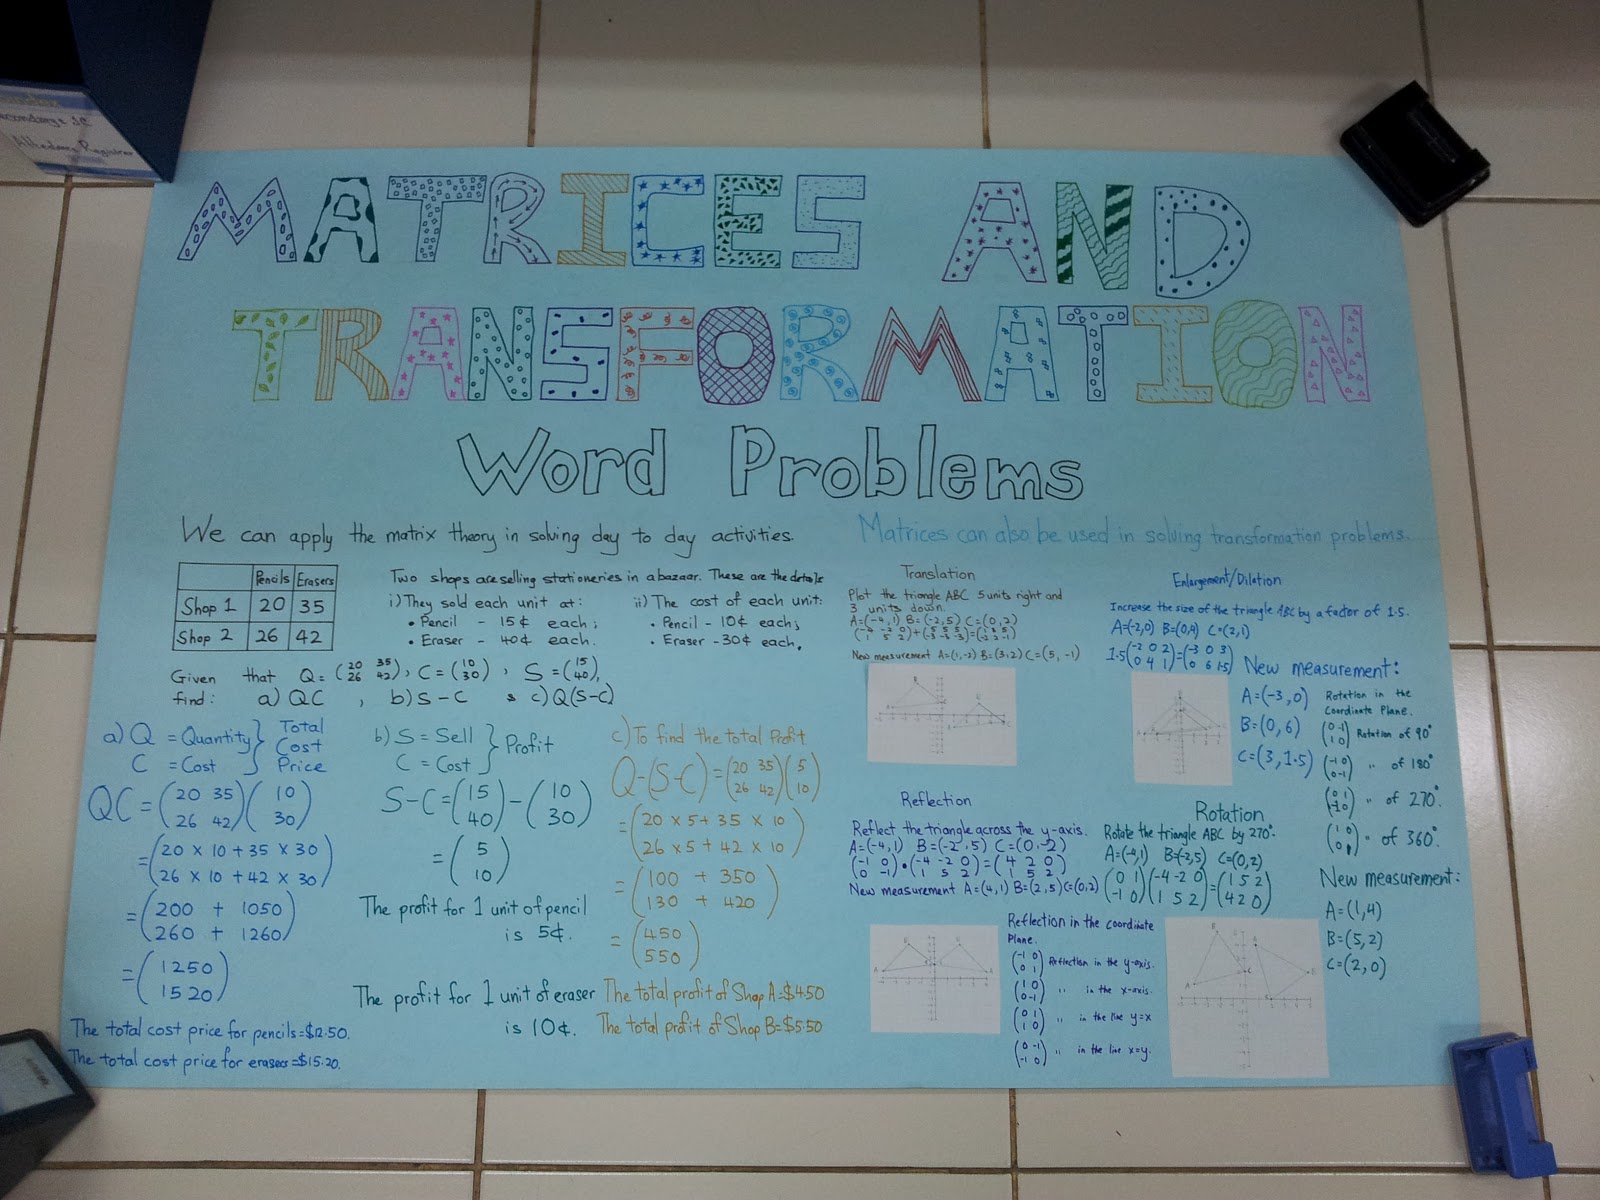 Secondary 2C
Attedance Register
MATRICES AND
TRANSFORMATION
Word Problems
We can apply the matrix theory in solving day to day activities.
Pencils Erasers
Shop 1 20 35
Shop 2 26 42
Two shops are selling stationeries in a bazaar. These are the details
i) They sold each unit at:
• Pencil - 15¢ each;
• Eraser - 40¢ each.
ii) The cost of each unit:
• Pencil - 10¢ each;
• Eraser - 30¢ each.
Given that Q = (20 35 26 42), C = (10 30), S = (15 40),
find: a) QC , b) S - C & c) Q(S-C)
a) Q = Quantity } Total
C = Cost } Cost
Price
QC = (20 35 (10
26 42) 30)
= (20 × 10 + 35 × 30
26 × 10 + 42 × 30)
= (200 + 1050
260 + 1260)
= (1250
1520)
The total cost price for pencils = $12.50.
The total cost price for erasers = $15.20.
b) S = Sell } Profit
C = Cost
S - C = (15 - (10
40) 30)
= (5
10)
The profit for 1 unit of pencil
is 5¢.
The profit for 1 unit of eraser
is 10¢.
c) To find the total Profit
Q - (S - C) = (20 35 (5
26 42) 10)
= (20 × 5 + 35 × 10
26 × 5 + 42 × 10)
= (100 + 350
130 + 420)
= (450
550)
The total profit of Shop A = $4.50
The total profit of Shop B = $5.50
Matrices can also be used in solving transformation problems.
Translation
Plot the triangle ABC 5 units right and
3 units down.
A = (-4, 1) B = (-2, 5) C = (0, 2)
New measurement A = (1, -2) B = (3, 2) C = (5, -1)
Enlargement/Dilation
Increase the size of the triangle ABC by a factor of 1.5.
A = (-2,0) B = (0,4) C = (2,1)
1.5 (-2 0 2 = (-3 0 3
0 4 1) 0 6 1.5)
New measurement:
A = (-3, 0)
B = (0, 6)
C = (3, 1.5)
Rotation in the
Coordinate Plane.
(0 -1
1 0) Rotation of 90°
(-1 0
0 -1) " of 180°
" of 270°.
" of 360°.
Reflection
Reflect the triangle across the y-axis.
A = (-4, 1) B = (-2, 5) C = (0, -2)
(-1 0 • (-4 -2 0 = (4 2 0
0 -1) 1 5 2) 1 5 2)
New measurement A = (4,1) B = (2,5) C = (0,2)
Reflection in the coordinate
Plane.
(-1 0
0 1) Reflection in the y-axis.
(1 0
0 -1) " in the x-axis.
(0 1
1 0) " in the line y=x
(0 -1
-1 0) " in the line x=y.
Rotation
Rotate the triangle ABC by 270°.
A = (-4,1) B = (-2,5) C = (0,2)
(0 1 (-4 -2 0 = (1 5 2
-1 0) 1 5 2) 4 2 0)
New measurement:
A = (1, 4)
B = (5, 2)
C = (2, 0)